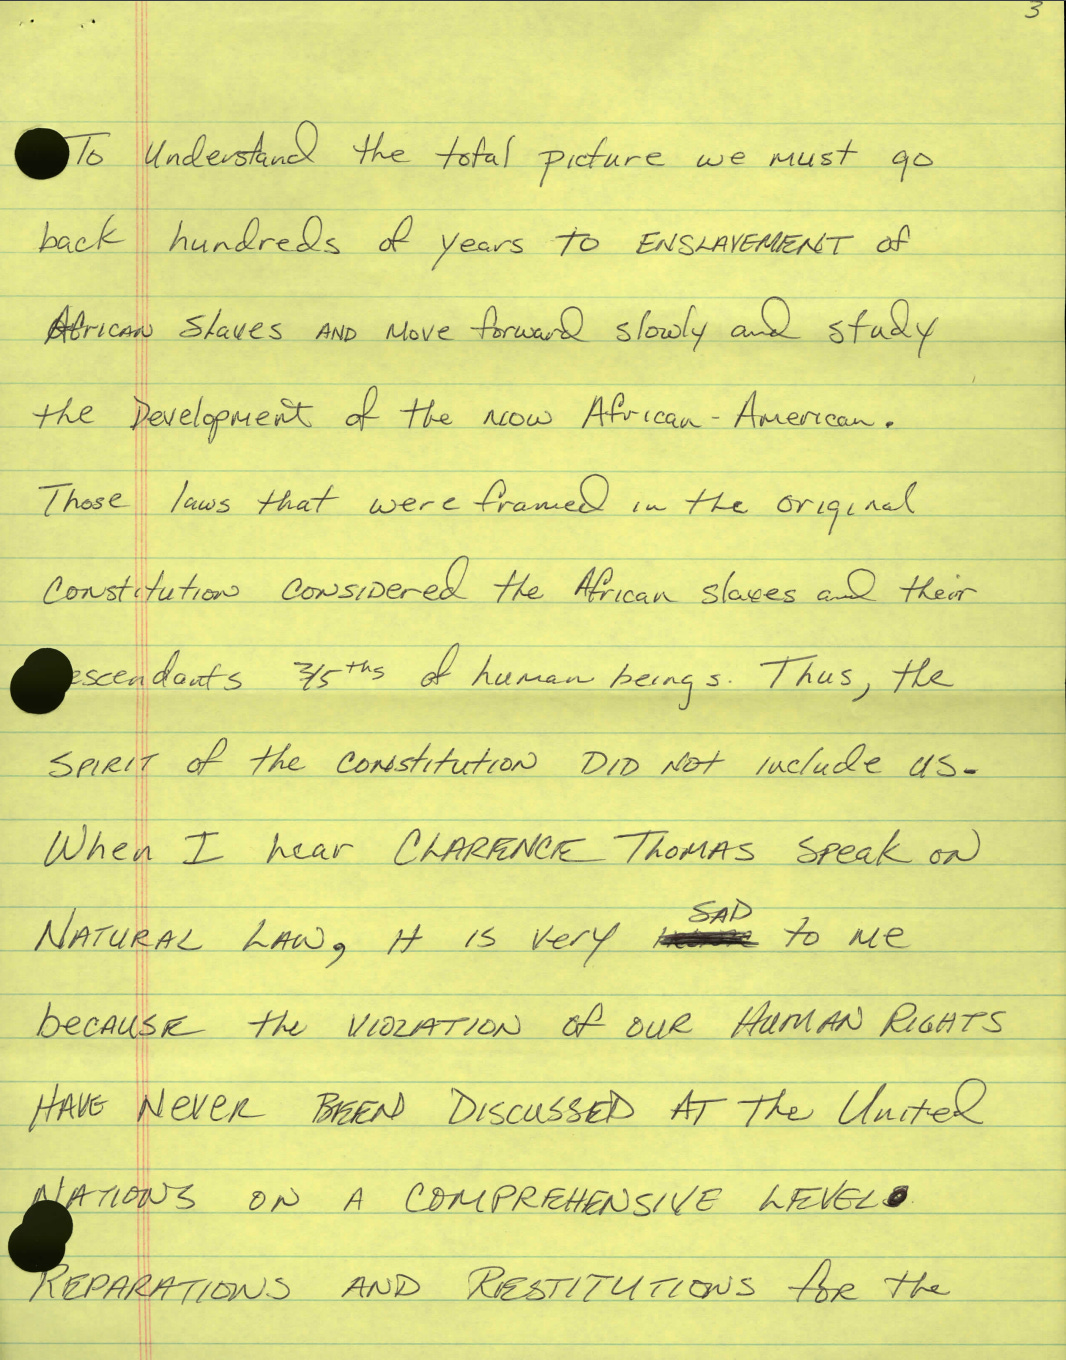 3
To Understand the total picture we must go
back hundreds of years TO ENSLAVEMENT of
African Slaves AND Move forward slowly and study
the Development of the now African-American.
Those laws that were framed in the original
Constitution CONSIDered the African slaves and their
escendants 3/5ths of human beings. Thus, the
SPIRIT of the CONSTITUTION DID NOT include us.
When I hear CLARENCE THOMAS Speak on
NATURAL LAW, it is very SAD to me
because the VIOLATION of OUR HUMAN RIGHTS
HAVE Never BEEN DISCUSSED AT The United
NATIONS ON A COMPREHENSIVE LEVEL.
REPARATIONS AND RESTITUTIONS for the